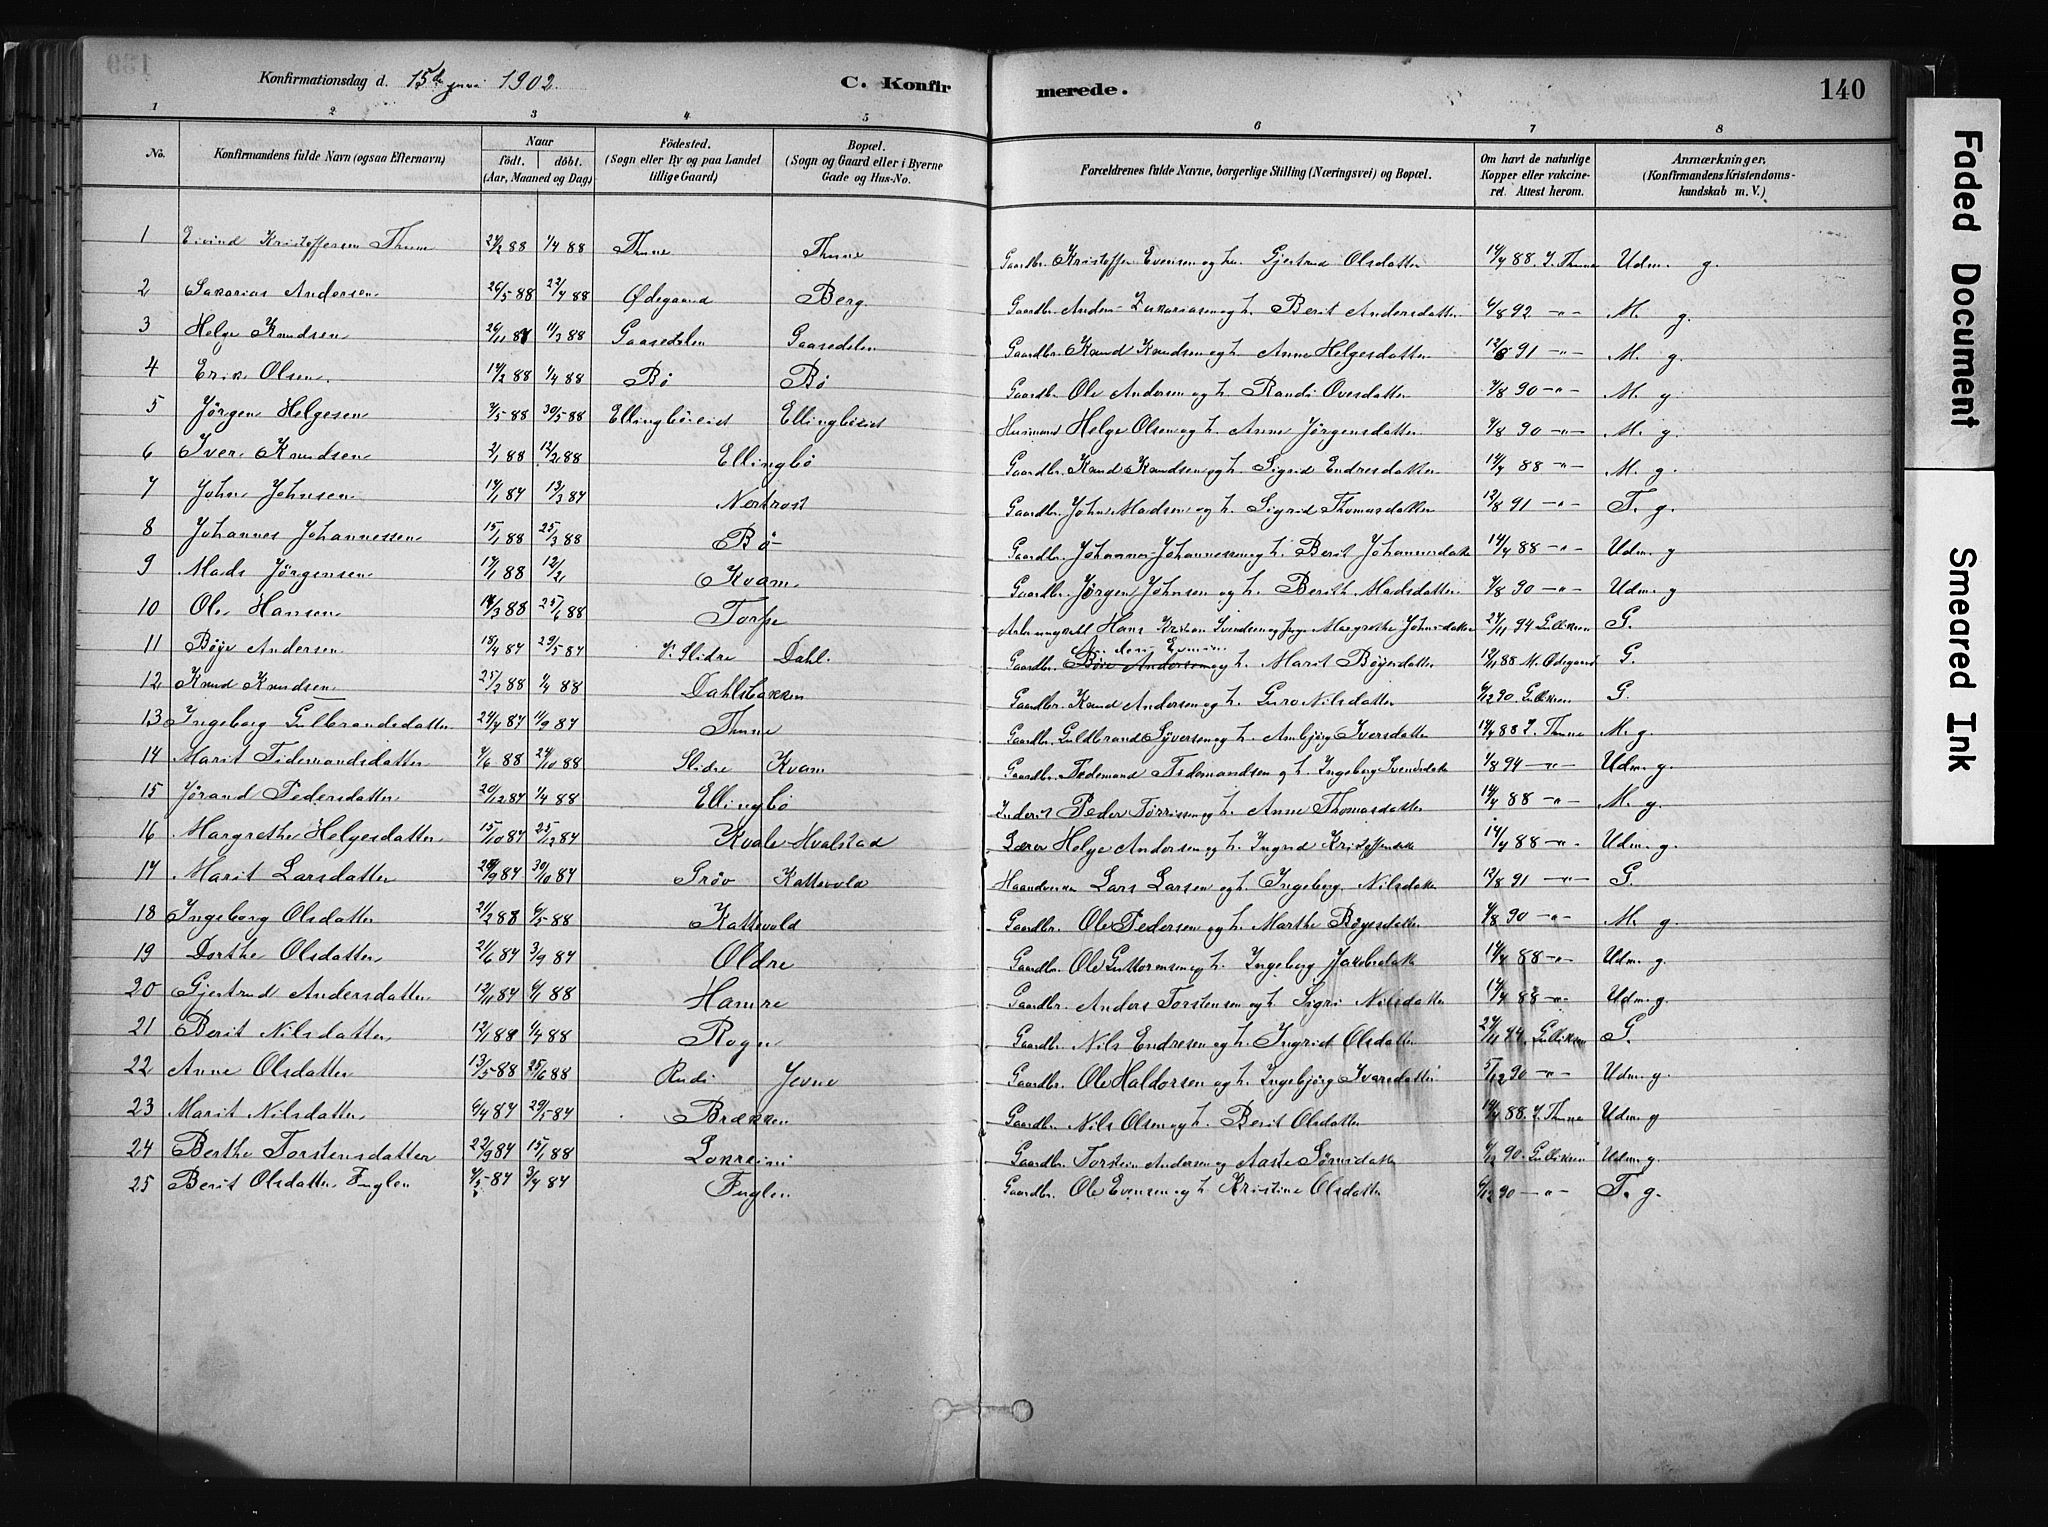 Konfirmationsdag d. 15de juni 1902.
C. Konfirmerede.
140
1 2 3 4 5 6 7 8
No.
Konfirmandens fulde Navn (ogsaa Efternavn)
Naar
födt. döbt.
(Aar, Maaned og Dag)
Födested.
(Sogn eller By og paa Landet tillige Gaard)
Bopæl.
(Sogn og Gaard eller i Byerne Gade og Hus-No.
Forældrenes fulde Navne, borgerlige Stilling (Næringsvei) og Bopæl.
Om havt de naturlige Kopper eller vakcineret. Attest herom.
Anmærkninger.
(Konfirmandens Kristendomskundskab m. V.)
1 Eivind Kristoffersen Thune 1/4 88 Thune Thune Gaardbr. Kristoffer Evensen og h. Gjertrud Olsdatter 14/4 88. Udm. g.
2 Sakarias Andersen 26/5 88 Ødegaard Berg Gaardbr. Anders Zakariasen og h. Berit Andersdatter 6/8 92 -"- M. g.
3 Helge Knudsen 11/3 88 Gaasedelen Gaasedelen Gaardbr. Knud Knudsen og h. Anne Helgesdatter 12/8 91 -"- M. g.
4 Erik Olsen. 1/4 88 Bø Bø Gaardbr. Ole Andersen og h. Randi Ovesdatter 90 -"- M. g
5 Jörgen Helgesen 30/5 88 Ellingböeid Ellingböeid Husmand Helge Olsen og h. Anne Jörgensdatter 90 -"- M. g.
6 Iver Knudsen 2/1 88 12/2 88 Ellingbö Gaardbr. Knud Knudsen og h. Sigrid Endresdatter 14/4 88 -"- M. g.
7 John Johnsen 13/3 87 Nordrost Gaardbr. John Madsen og h. Sigrid Thomasdatter 12/8 91 -"- T. g.
8 Johannes Johannessen 15/1 88 25/3 88 Bö Gaardbr. Johannes Johannessen og h. Berit Johannesdatt 14/4 88 -"- Udm. g
9 Mads Jörgensen 12/2 Kvam Gaardbr. Jörgen Johnsen og h. Berith Madsdatter 90 -"- Udm. g
10 Ole Hansen Torpe Hans Kristian Svendsen og Margrethe Johnsdatter 94 Gulliksen G.
11 Böye Andersen 29/5 87 V. Slidre Dahl. Gaardbr. Böie Andersen og h. Marit Böyesdatter 88 M. Ødegaard G.
12 Knud Knudsen 88 Dahlsbakken Gaardbr. Knud Andersen og h. Guro Nilsdatter 6/12 90 Gulliksen G.
13 Ingeborg Gulbrandsdatter 11/9 87 Thune Gaardbr. Guldbrand Syversen og h. Ambjörg Iversdatter 14/4 88 Thune M. g.
14 Marit Tidemandsdatter 88 24/10 88 Slidre Kvam Gaardbr. Tidemand Tidemandsen og h. Ingeborg Svendsdatt 94 -"- Udm. g.
15 Jörand Pedersdatter 20/12 87 1/4 88 Ellingbö Inderst Peder Torrissen og h. Anne Thomasdatter 14/4 88 -"- M. g.
16 Margrethe Helgesdatter 15/10 87 25/12 87 Kvale Hvalstad Lærer Helge Andersen og h. Ingrid Kristoffersdatt 14/4 88 -"- Udm. g.
17 Marit Larsdatter 87 Gröv Kattevold Lars Larsen og h. Ingeborg Nilsdatt 12/8 91 -"- G.
18 Ingeborg Olsdatter 21/2 88 6/5 88 Kattevold Gaardbr. Ole Pedersen og h. Marthe Böyesdatter 90 -"- M. g.
19 Dorthe Olsdatter 21/6 87 3/9 87 Oldre Gaardbr. Ole Guttormsen og h. Ingeborg Jakobsdatt 14/4 88 -"- Udm. g.
20 Gjertrud Andersdatter 12/11 87 6/1 88 Hamre Gaardbr. Anders Torstensen og h. Sigri Nilsdatter 14/4 88 -"- Udm. g.
21 Berit Nilsdatter 12/1 88 88 Rogn Gaardbr. Nils Endresen og h. Ingrid Olsdatter Gulliksen G.
22 Anne Olsdatter 13/5 88 25/6 88 Rudi Jevne Gaardbr. Ole Haldorsen og h. Ingebjörg Iversdatter 5/12 90 -"- Udm. g.
23 Marit Nilsdatter 6/4 87 29/5 87 Brækken Gaardbr. Nils Olsen og h. Berit Olsdatter 14/4 88. Thune Udm. g
24 Berthe Torstensdatter 22/9 87 15/1 88 Gaardbr. Torstein Andersen og Aaste 6/12 90. Gulliksen Udm. g.
25 Berit Olsdatter Fuglen 87 Fuglen Gaardbr. Ole Evensen og h. Kristine Olsdatter 6/12 90 -"- T. g.
Faded Document
Smeared Ink